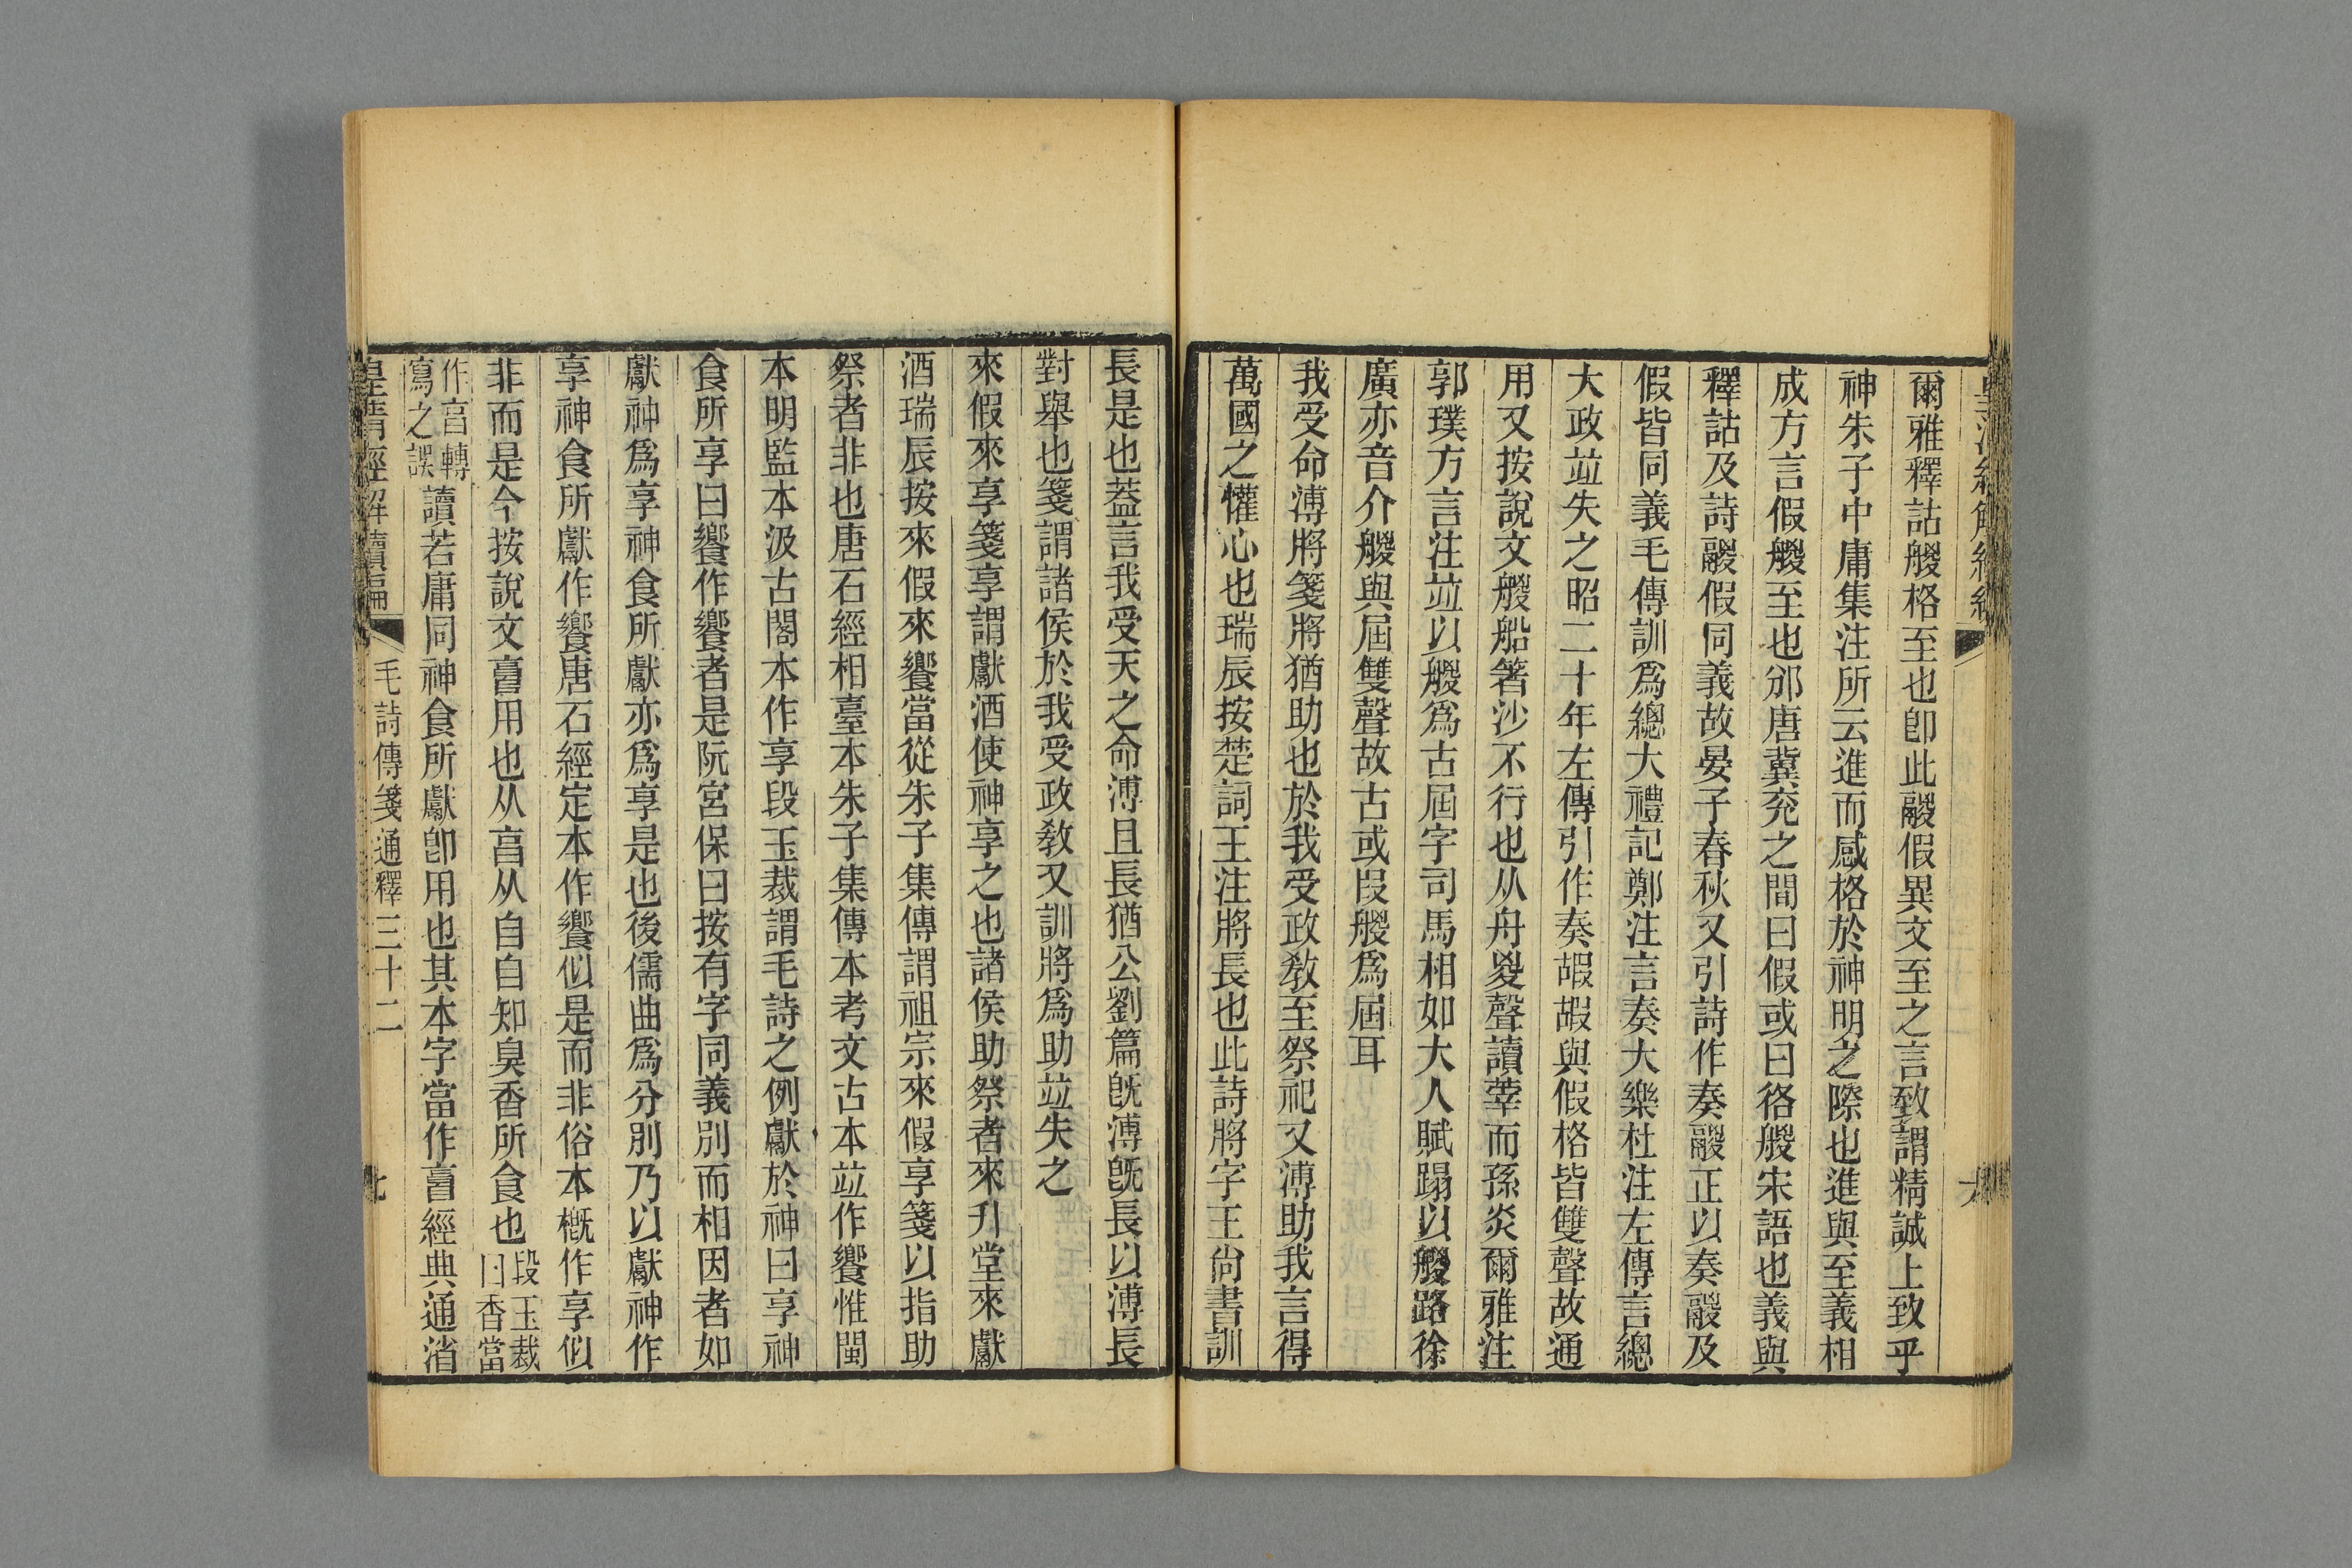 爾雅釋詁艐格至也卽此鬷假異文至之言致謂精誠上致乎
神朱子中庸集注所云進而感格於神明之際也進與至義相
成方言假艐至也邠唐冀兖之間曰假或曰徦艐宋語也義與
釋詁及詩鬷假同義故晏子春秋又引詩作奏鬷正以奏鬷及
假皆同義毛傳訓爲總大禮記鄭注言奏大樂杜注左傳言總
大政竝失之昭二十年左傳引作奏嘏嘏與假格皆雙聲故通
用又按說文艐船箸沙不行也从舟㚇聲讀莘而孫炎爾雅注
郭璞方言注竝以艐爲古屆字司馬相如大人賦蹋以艐路徐
廣亦音介艐與屆雙聲故古或叚艐爲屆耳
我受命溥將箋將猶助也於我受政敎至祭祀又溥助我言得
萬國之懽心也瑞辰按楚詞王注將長也此詩將字王尙書訓
長是也蓋言我受天之命溥且長猶公劉篇旣溥旣長以溥長
對舉也箋謂諸侯於我受政敎又訓將爲助竝失之
來假來享箋享謂獻酒使神享之也諸侯助祭者來升堂來獻
酒瑞辰按來假來饗當從朱子集傳謂祖宗來假享箋以指助
祭者非也唐石經相臺本朱子集傳本考文古本竝作饗惟閩
本明監本汲古閣本作享段玉裁謂毛詩之例獻於神曰享神
食所享曰饗作饗者是阮宮保曰按有字同義別而相因者如
獻神爲享神食所獻亦爲享是也後儒曲爲分別乃以獻神作
享神食所獻作饗唐石經定本作饗似是而非俗本槪作享似
非而是今按說文㐭用也从亯从自自知臭香所食也段玉裁曰香當
作亯轉寫之誤讀若庸同神食所獻卽用也其本字當作㐭經典通渻
皇淸經解續編 毛詩傳箋通釋三十二